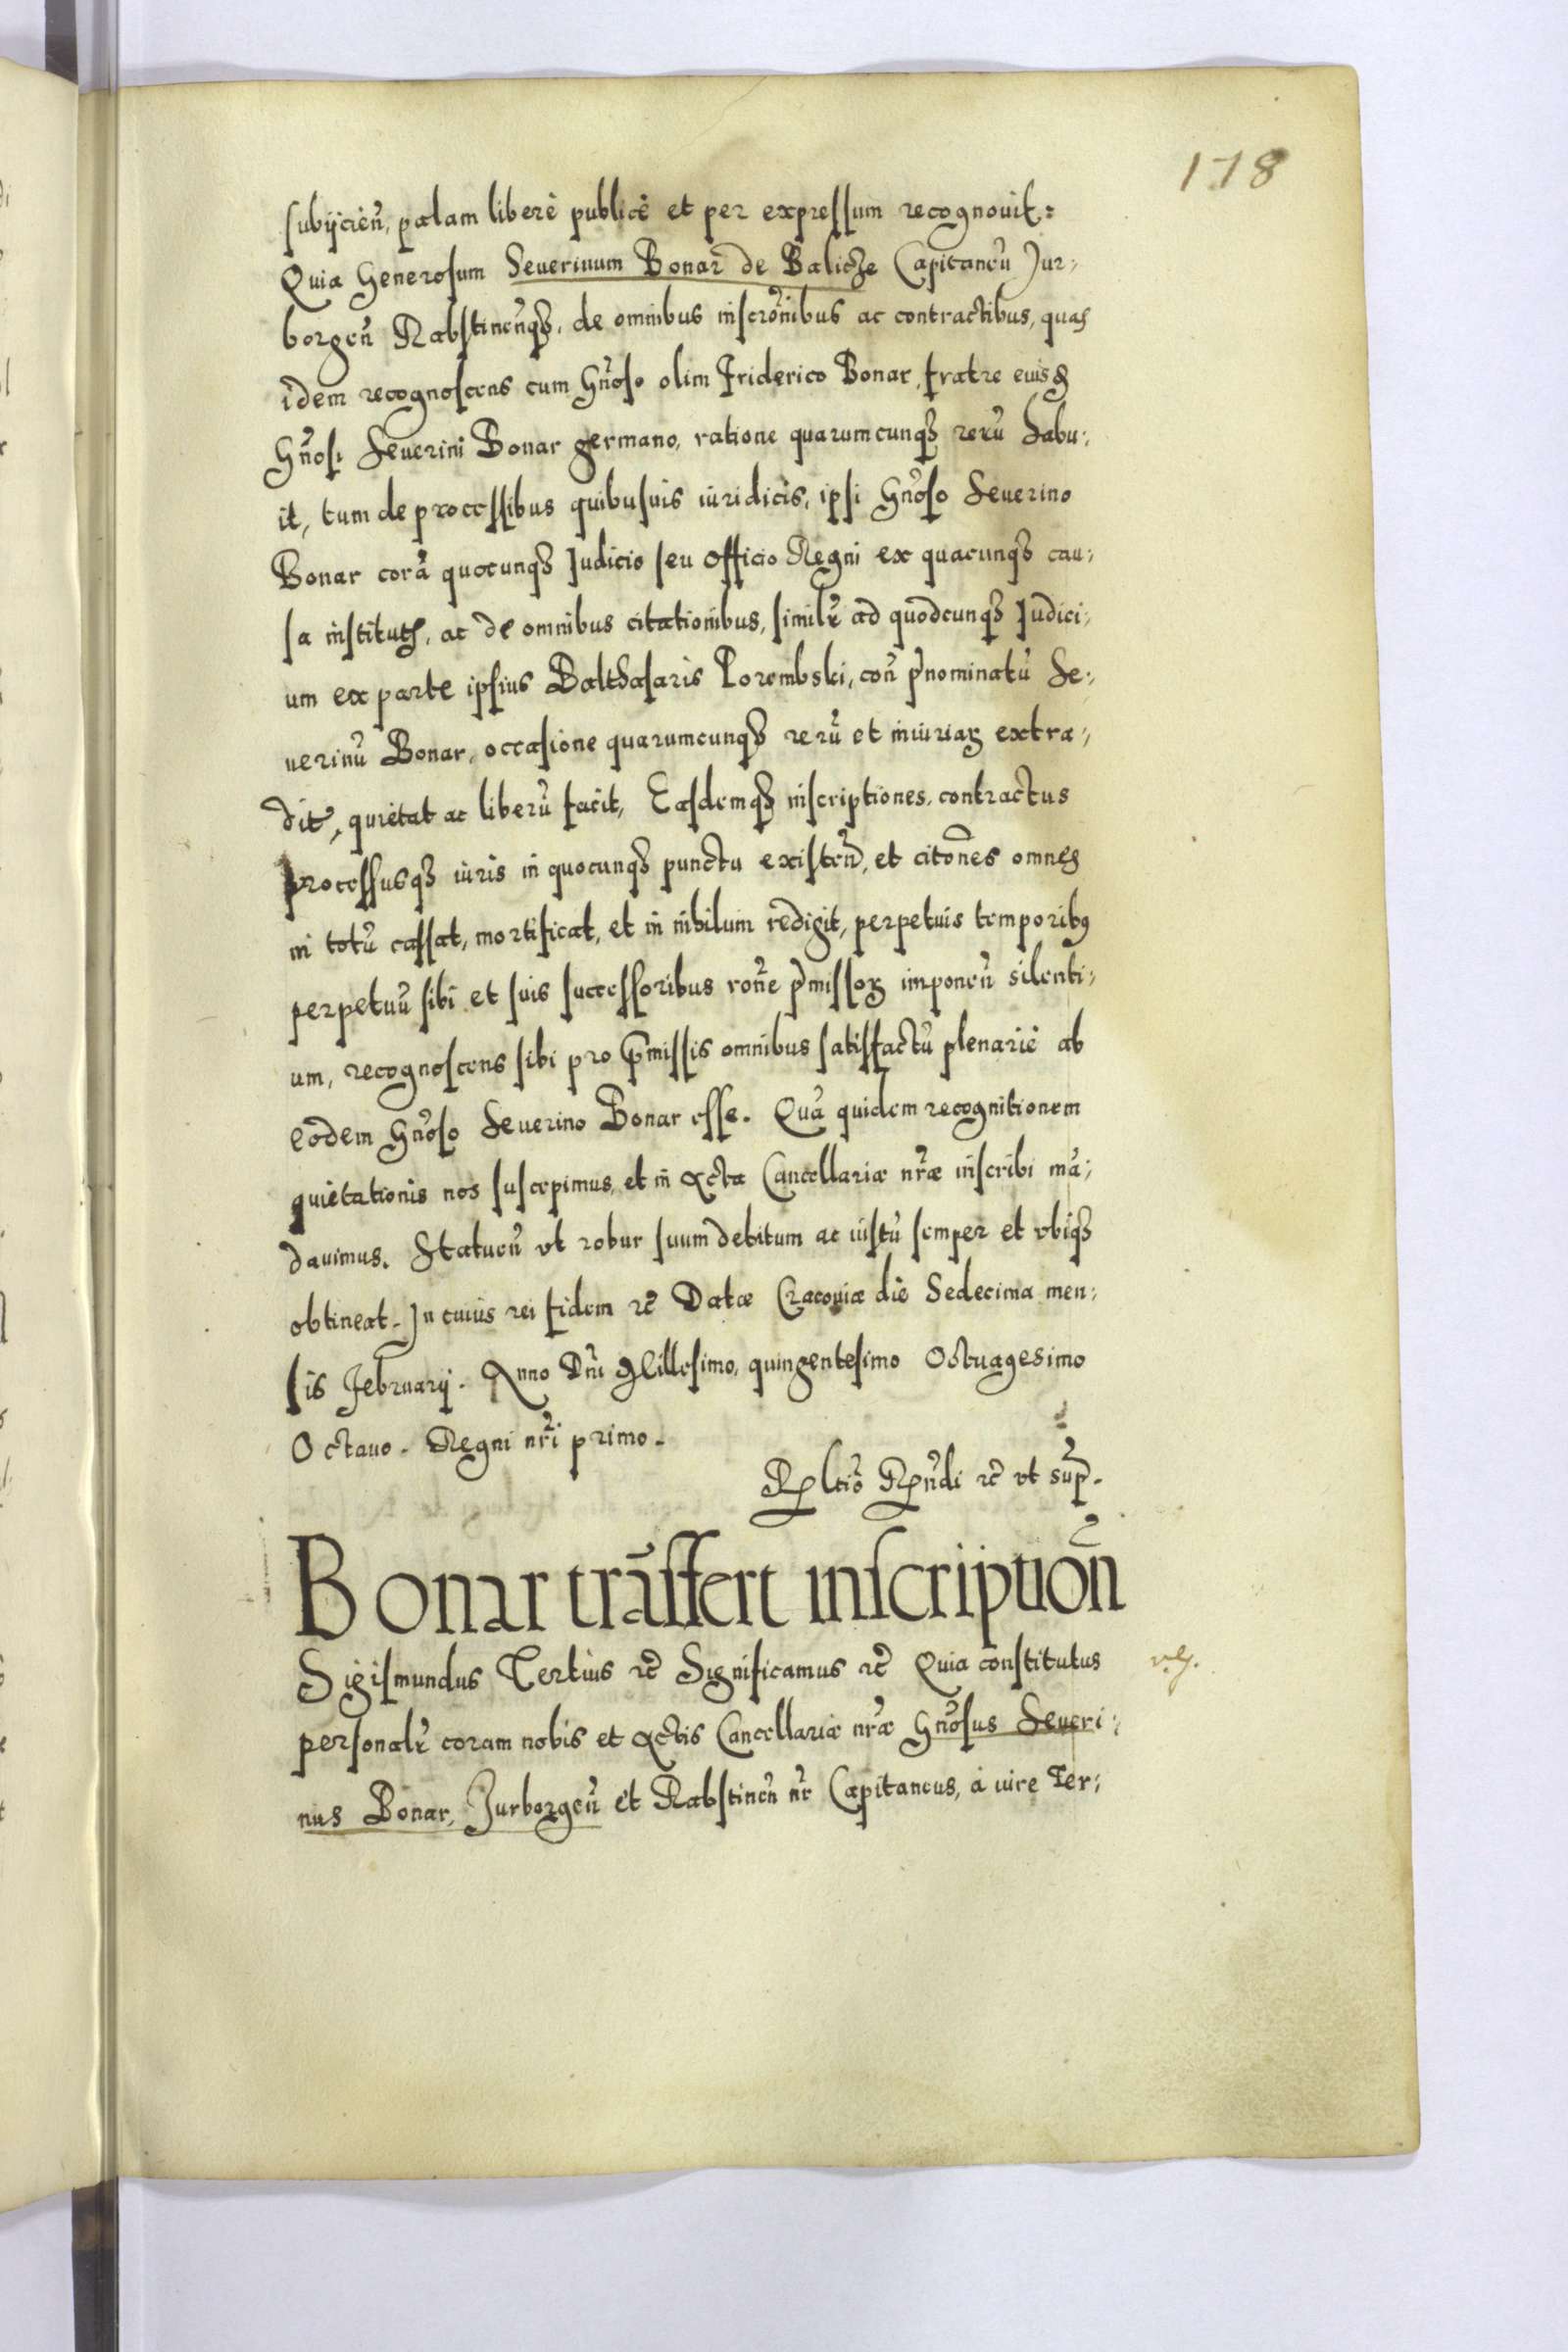 178
subijcieñ, palam liberè publicè et per expressum recognovit:
Quia Generosum Severinum Bonar de Balicze Capitaneũ Jur-
borgeñ Rabstineñqз, de omnibus inscrõnibus ac contractibus, quas
idem recognoscens cum Gñoso olim Friderico Bonar, fratre eiusd
Gñosi Severini Bonar germano, ratione quarumcunqз rerũ habu-
it, tum de processibus quibusvis iuridicis, ipsi Gñoso Severino
Bonar corã quocunqз Judicio seu Officio Regni ex quacunqз cau-
sa institutis, ac de omnibus citationibus, similr ad quodcunqз Judici-
um ex parte ipsius Balthasaris Porembski, coñ p̃nominatũ Se-
verinũ Bonar, occasione quarumcunqз rerũ et iniuriaꝝ extra-
dit, quietat ac liberũ facit, Easdemqз inscriptiones, contractus
processusqз iuris in quocunqз punctu existeñ, et citoñes omnes
in totũ cassat, mortificat, et in nihilum redigit, perpetuis temporibꝯ
perpetuũ sibi et suis successoribus roñe p̃missoꝝ imponeñ silenti-
um, recognoscens sibi pro p̃missis omnibus satisfactũ plenariè ab
eodem Gñoso Severino Bonar esse. Quã quidem recognitionem
quietationis nos suscepimus, et in Acta Cancellariæ nr̃æ inscribi mã-
davimus. Statueñ vt robur suum debitum ac iustũ semper et vbiqз
obtineat. In cuius rei fidem ꝛc̃ Datæ Cracoviæ die Sedecima men-
sis Februarij. Anno Dñi Millesimo, quingentesimo Octuagesimo
Octavo. Regni nr̃i primo.
Rltio Rñdi ꝛc̃ vt sup̃.
Bonar trãsfert inscriptioñ
Sigismundus Tertius ꝛc̃ Significamus ꝛc̃ Quia constitutus
personalr coram nobis et Actis Cancellariæ nr̃æ Gñosus Severi-
nus Bonar, Jurborgeñ et Rabstineñ nr̃ Capitaneus, à iure Ter-